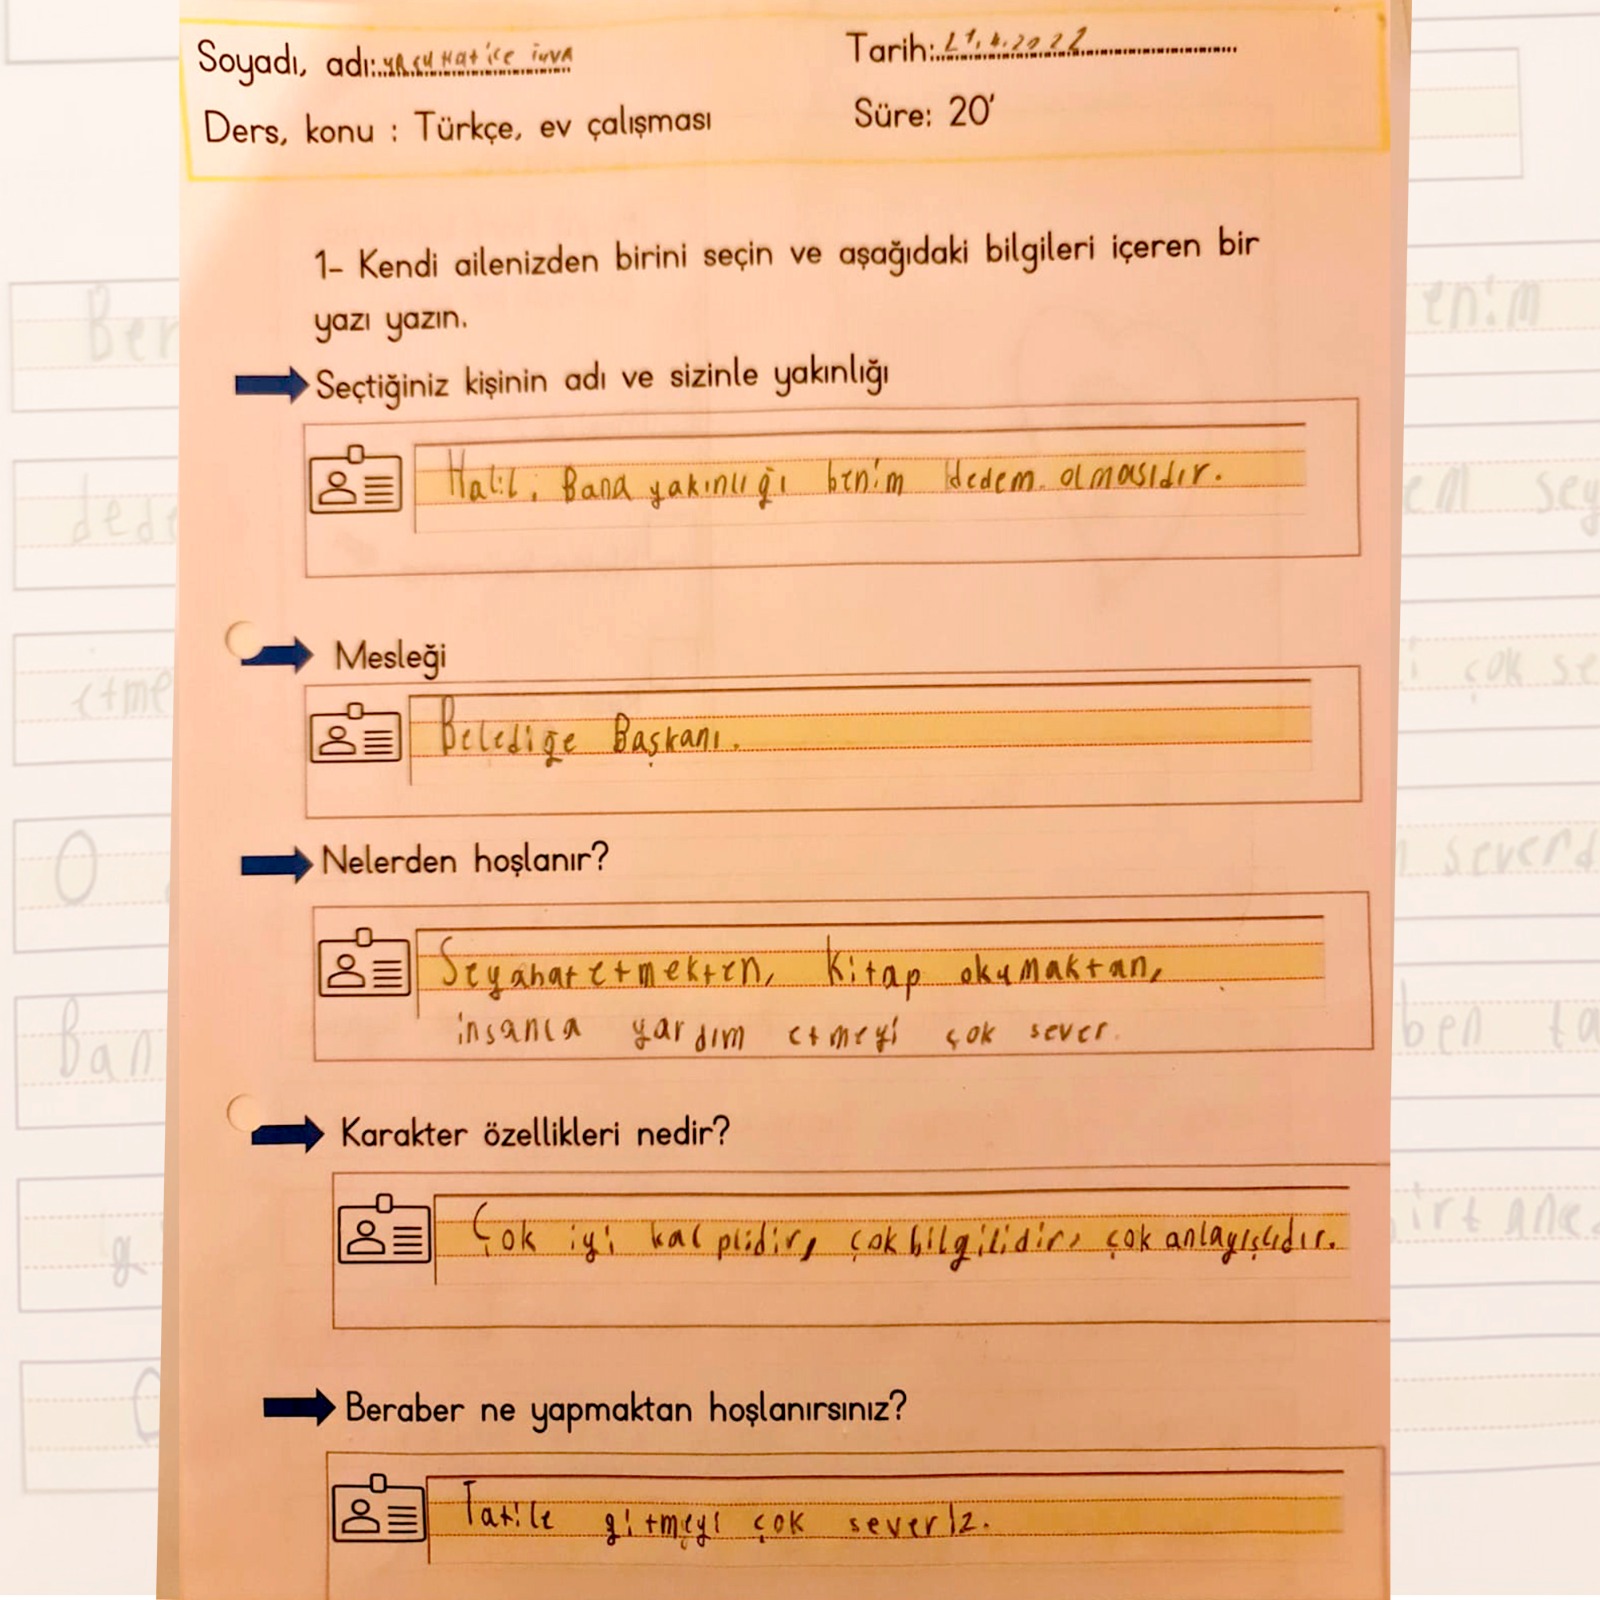 Soyadı, adı: Hatice
Tarih: 21.4.2022
Ders, konu : Türkçe, ev çalışması
Süre: 20'
1- Kendi ailenizden birini seçin ve aşağıdaki bilgileri içeren bir
yazı yazın.
Seçtiğiniz kişinin adı ve sizinle yakınlığı
Halil, Bana yakınlığı benim dedem olmasıdır.
Mesleği
Belediğe Başkanı.
Nelerden hoşlanır?
Seyahat etmekten, kitap okumaktan,
insanla yardım etmeyi çok sever.
Karakter özellikleri nedir?
Çok iyi kalplidir, çok bilgilidir, çok anlayışlıdır.
Beraber ne yapmaktan hoşlanırsınız?
Tatile gitmeyi çok severiz.